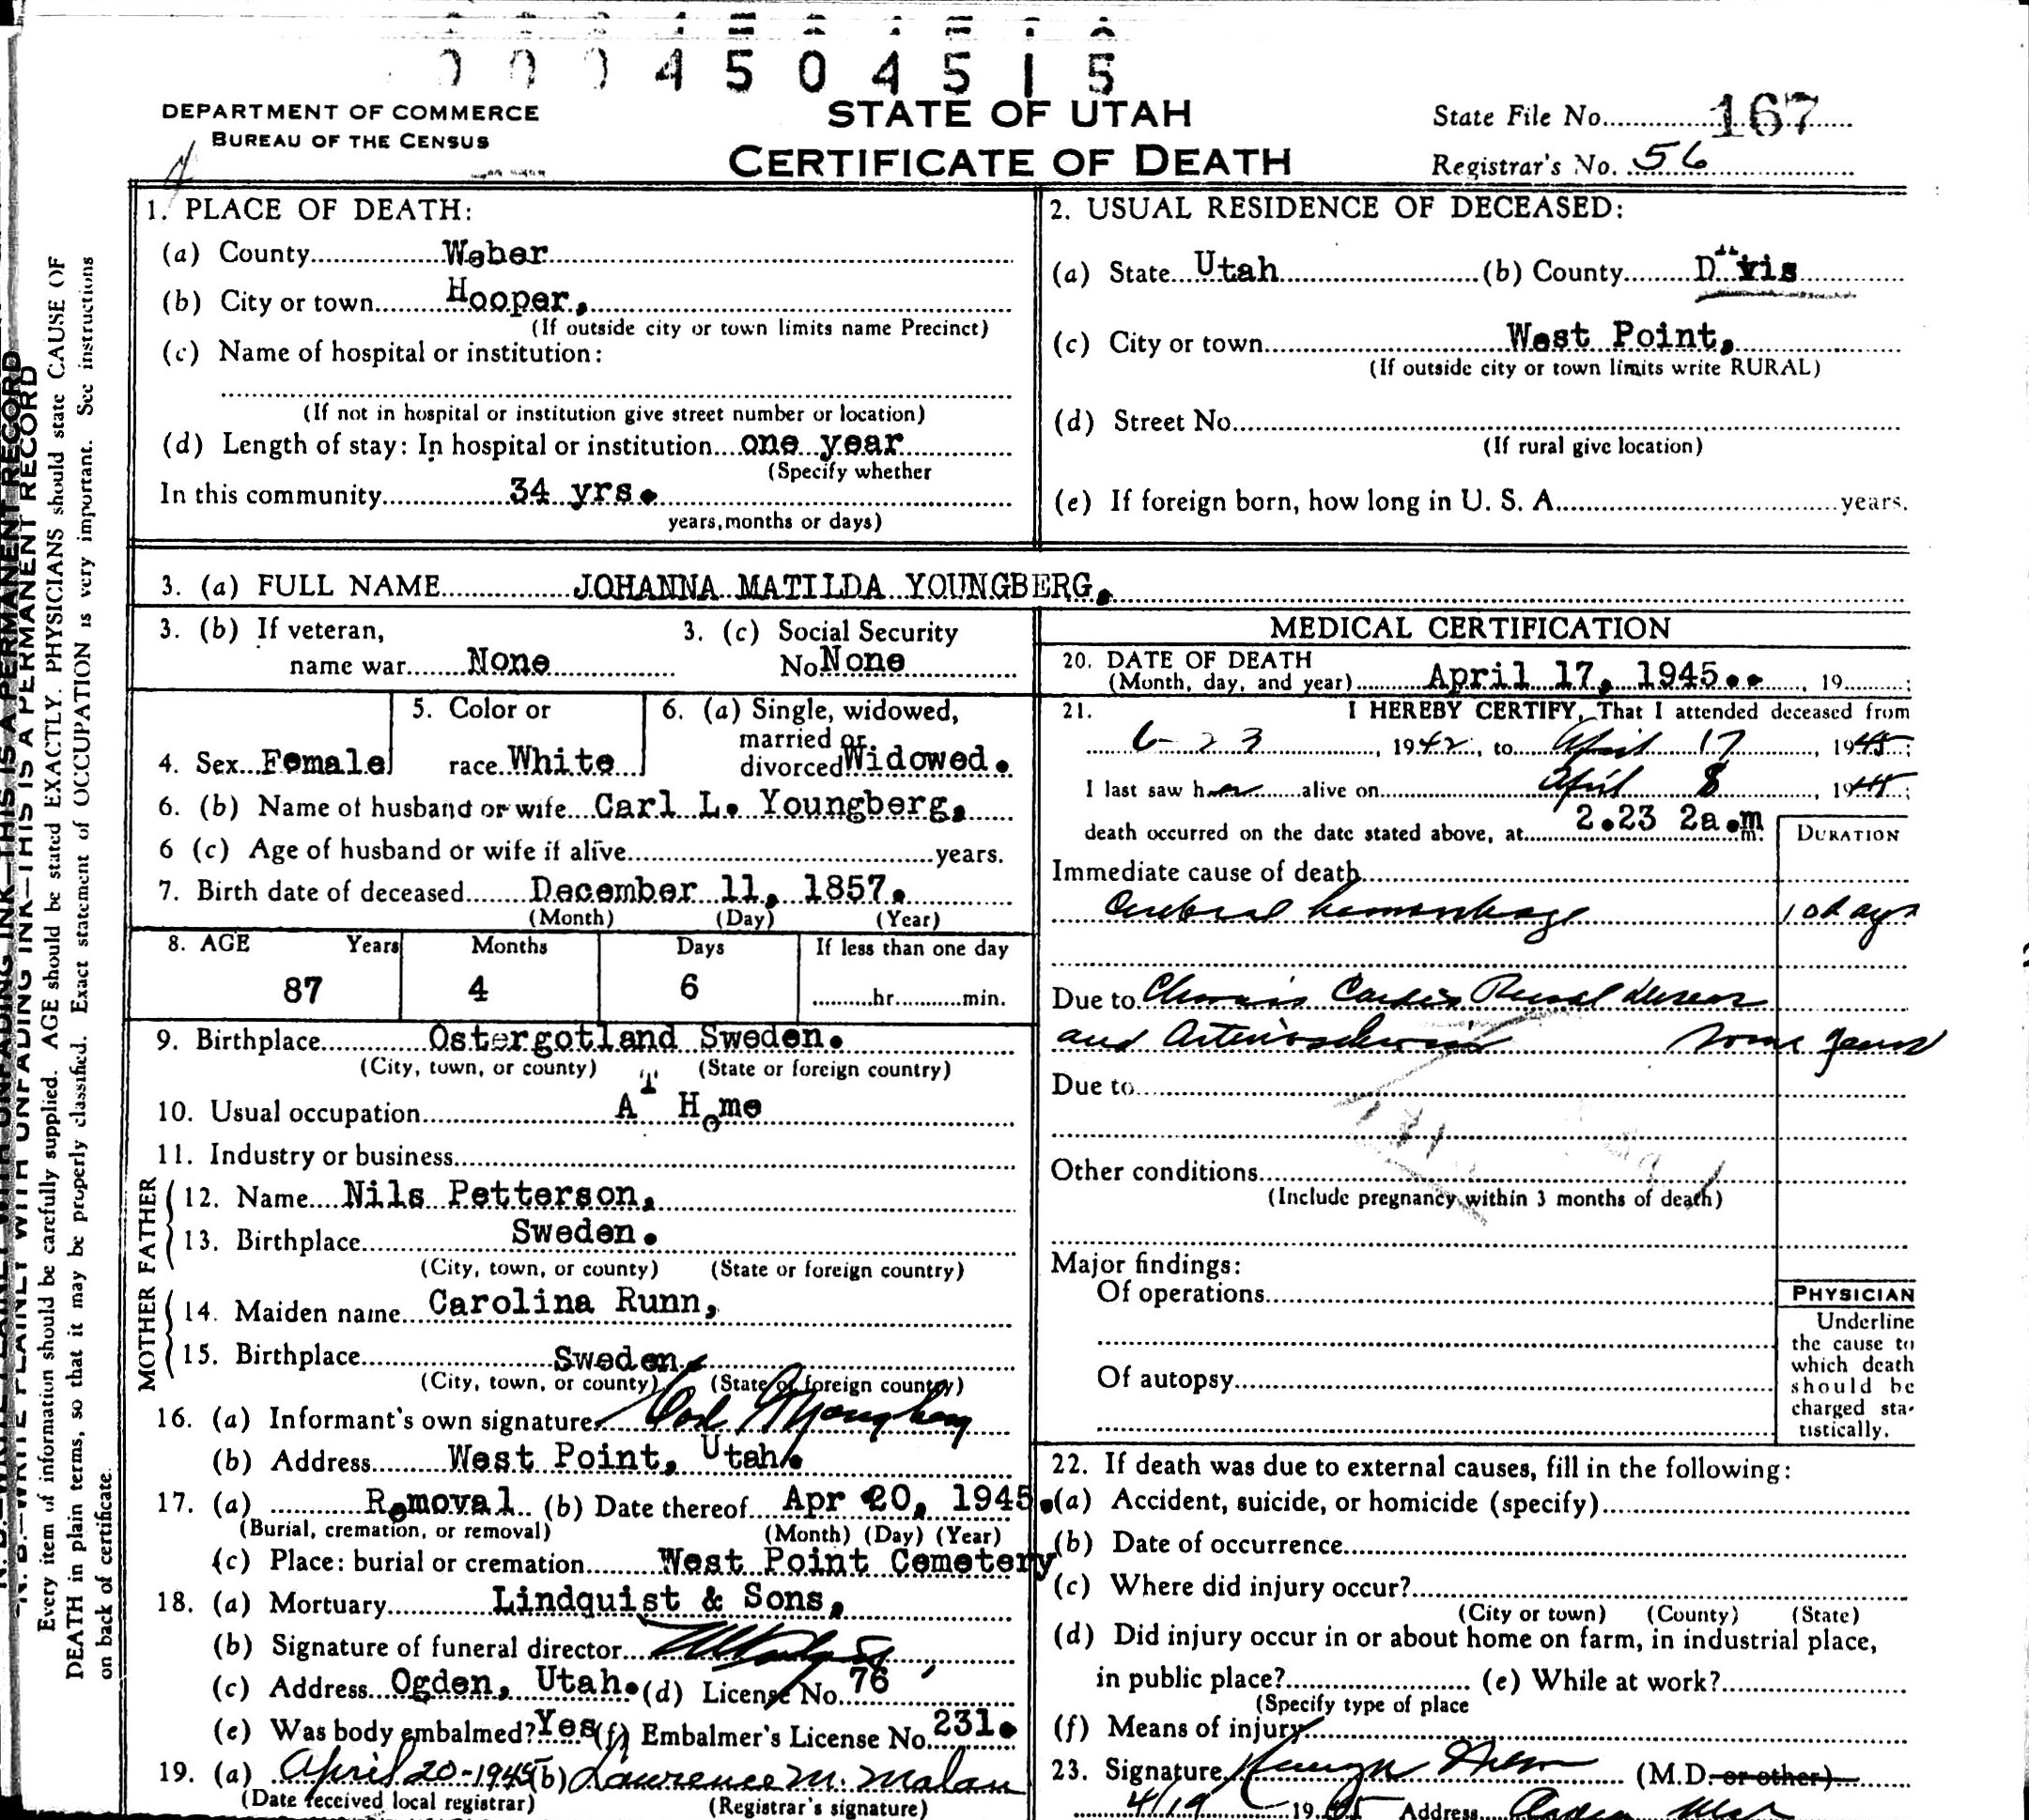 4 5 0 4 5 1 5
DEPARTMENT OF COMMERCE
BUREAU OF THE CENSUS
STATE OF UTAH
CERTIFICATE OF DEATH
State File No. 167
Registrar's No. 56
1. PLACE OF DEATH:
(a) County Weber
(b) City or town Hooper,
(If outside city or town limits name Precinct)
(c) Name of hospital or institution:
(If not in hospital or institution give street number or location)
(d) Length of stay: In hospital or institution one year
(Specify whether
In this community 34 yrs.
years, months or days)
2. USUAL RESIDENCE OF DECEASED:
(a) State Utah (b) County Davis
(c) City or town West Point,
(If outside city or town limits write RURAL)
(d) Street No.
(If rural give location)
(e) If foreign born, how long in U. S. A. years.
3. (a) FULL NAME JOHANNA MATILDA YOUNGBERG.
3. (b) If veteran, 3. (c) Social Security
name war None No None
4. Sex Female 5. Color or race White 6. (a) Single, widowed, married or divorced Widowed.
6. (b) Name of husband or wife Carl L. Youngberg,
6 (c) Age of husband or wife if alive years.
7. Birth date of deceased December 11, 1857.
(Month) (Day) (Year)
8. AGE Years Months Days If less than one day
87 4 6 hr. min.
9. Birthplace Ostergotland Sweden.
(City, town, or county) (State or foreign country)
10. Usual occupation AT Home
11. Industry or business
FATHER
12. Name Nils Petterson,
13. Birthplace Sweden.
(City, town, or county) (State or foreign country)
MOTHER
14. Maiden name Carolina Runn,
15. Birthplace Sweden.
(City, town, or county) (State or foreign country)
16. (a) Informant's own signature Youngberg
(b) Address West Point, Utah.
17. (a) Removal (b) Date thereof Apr 20, 1945.
(Burial, cremation, or removal) (Month) (Day) (Year)
(c) Place: burial or cremation West Point Cemetery
18. (a) Mortuary Lindquist & Sons,
(b) Signature of funeral director
(c) Address Ogden, Utah. (d) License No. 76
(e) Was body embalmed? Yes (f) Embalmer's License No. 231.
19. (a) April 20-1945 (b) Lawrence M. Malan
(Date received local registrar) (Registrar's signature)
MEDICAL CERTIFICATION
20. DATE OF DEATH
(Month, day, and year) April 17, 1945.. , 19 ;
21. I HEREBY CERTIFY, That I attended deceased from
6-23, 1942, to April 17, 1945;
I last saw her alive on April 8, 1945;
death occurred on the date stated above, at 2.23 2a.m m.
DURATION
Immediate cause of death
Cerebral hemorrhage 10 days
Due to Chronic Cardio Renal disease
and Arteriosclerosis some years
Due to
Other conditions
(Include pregnancy within 3 months of death)
Major findings:
Of operations
Of autopsy
PHYSICIAN
Underline
the cause to
which death
should be
charged sta-
tistically.
22. If death was due to external causes, fill in the following:
(a) Accident, suicide, or homicide (specify)
(b) Date of occurrence
(c) Where did injury occur?
(City or town) (County) (State)
(d) Did injury occur in or about home on farm, in industrial place,
in public place? (e) While at work?
(Specify type of place
(f) Means of injury
23. Signature (M.D. or other)
4/19 1945 Address Ogden Utah
N. B.—WRITE PLAINLY WITH UNFADING INK—THIS IS A PERMANENT RECORD
Every item of information should be carefully supplied. AGE should be stated EXACTLY. PHYSICIANS should state CAUSE OF
DEATH in plain terms, so that it may be properly classified. Exact statement of OCCUPATION is very important. See instructions
on back of certificate.